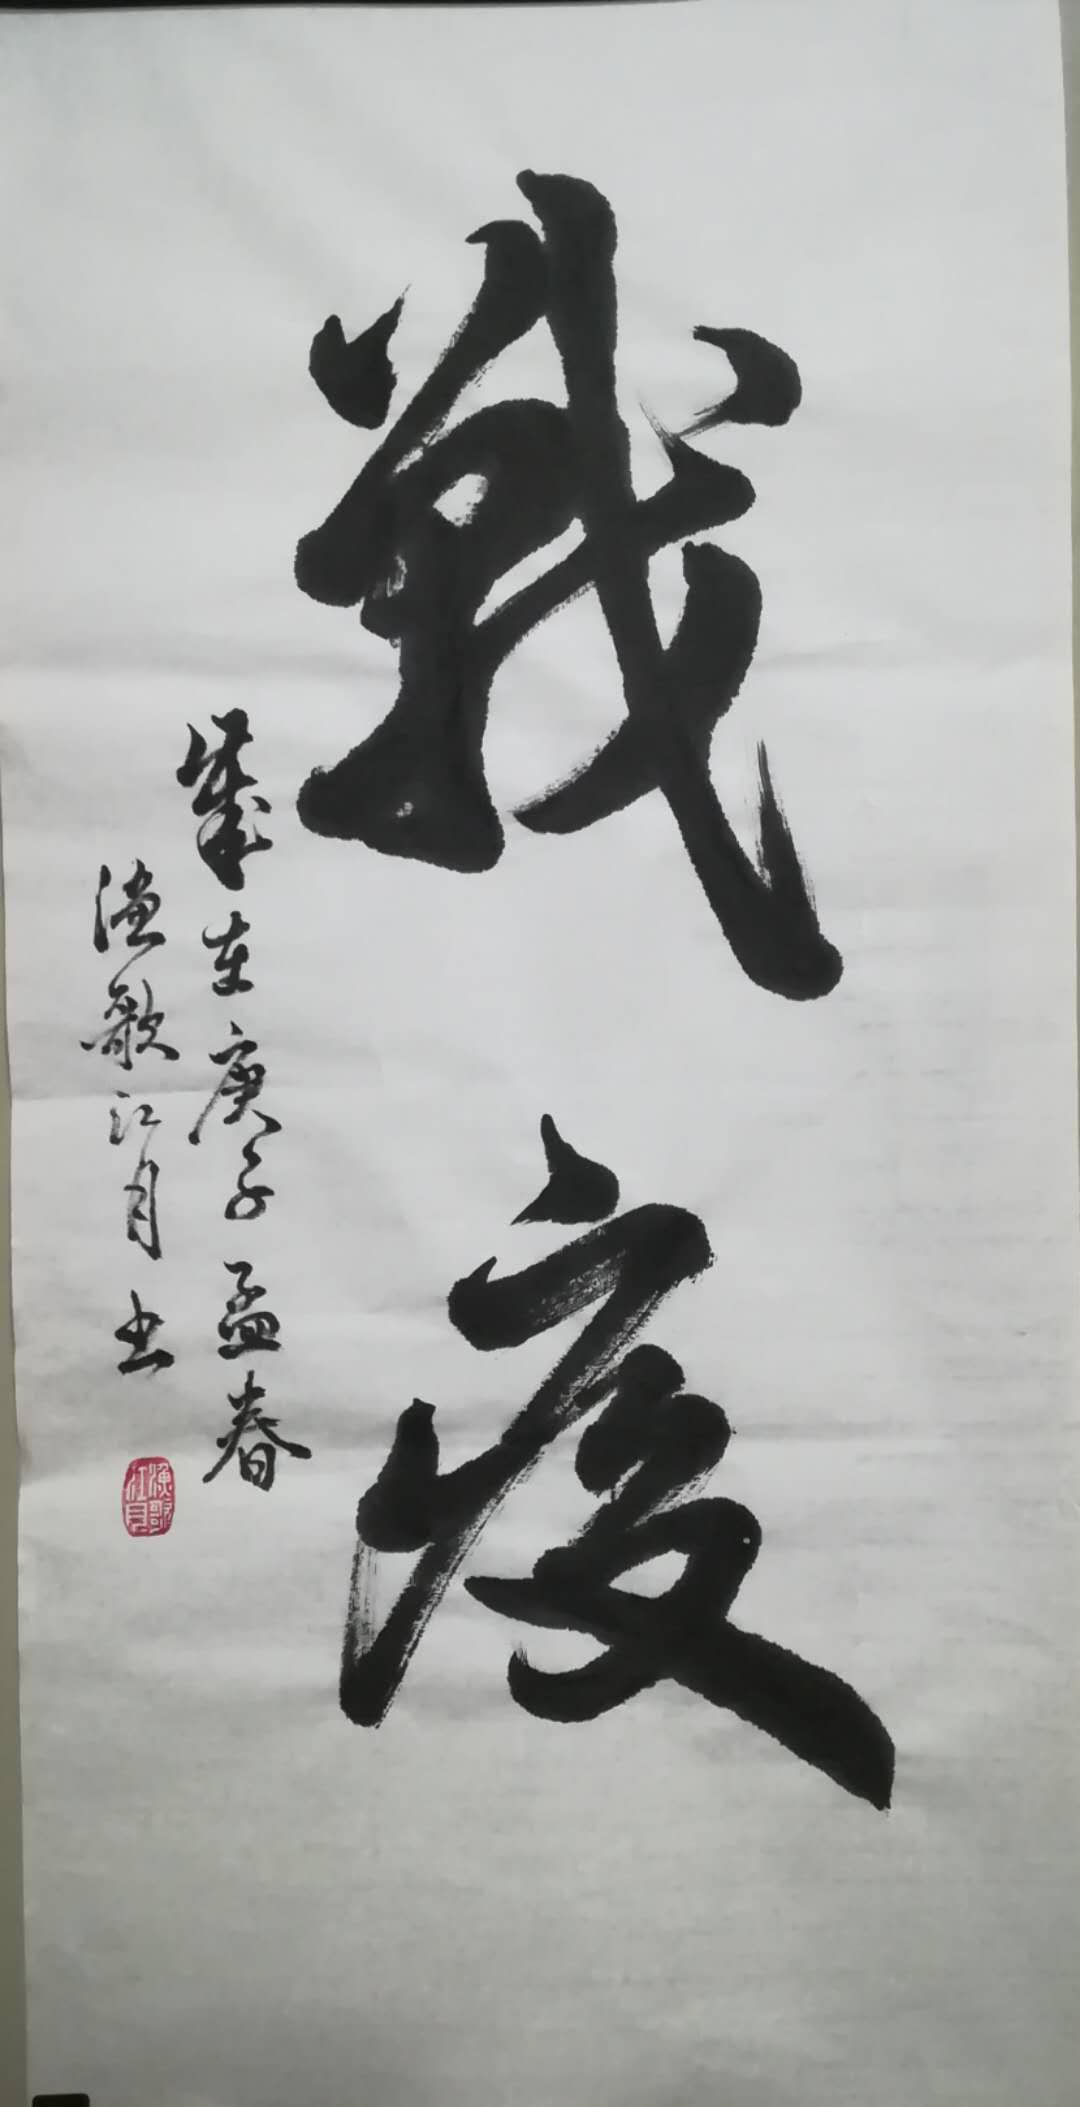 戰疫
歲在庚子孟春
漁歌江月书
漁歌江月